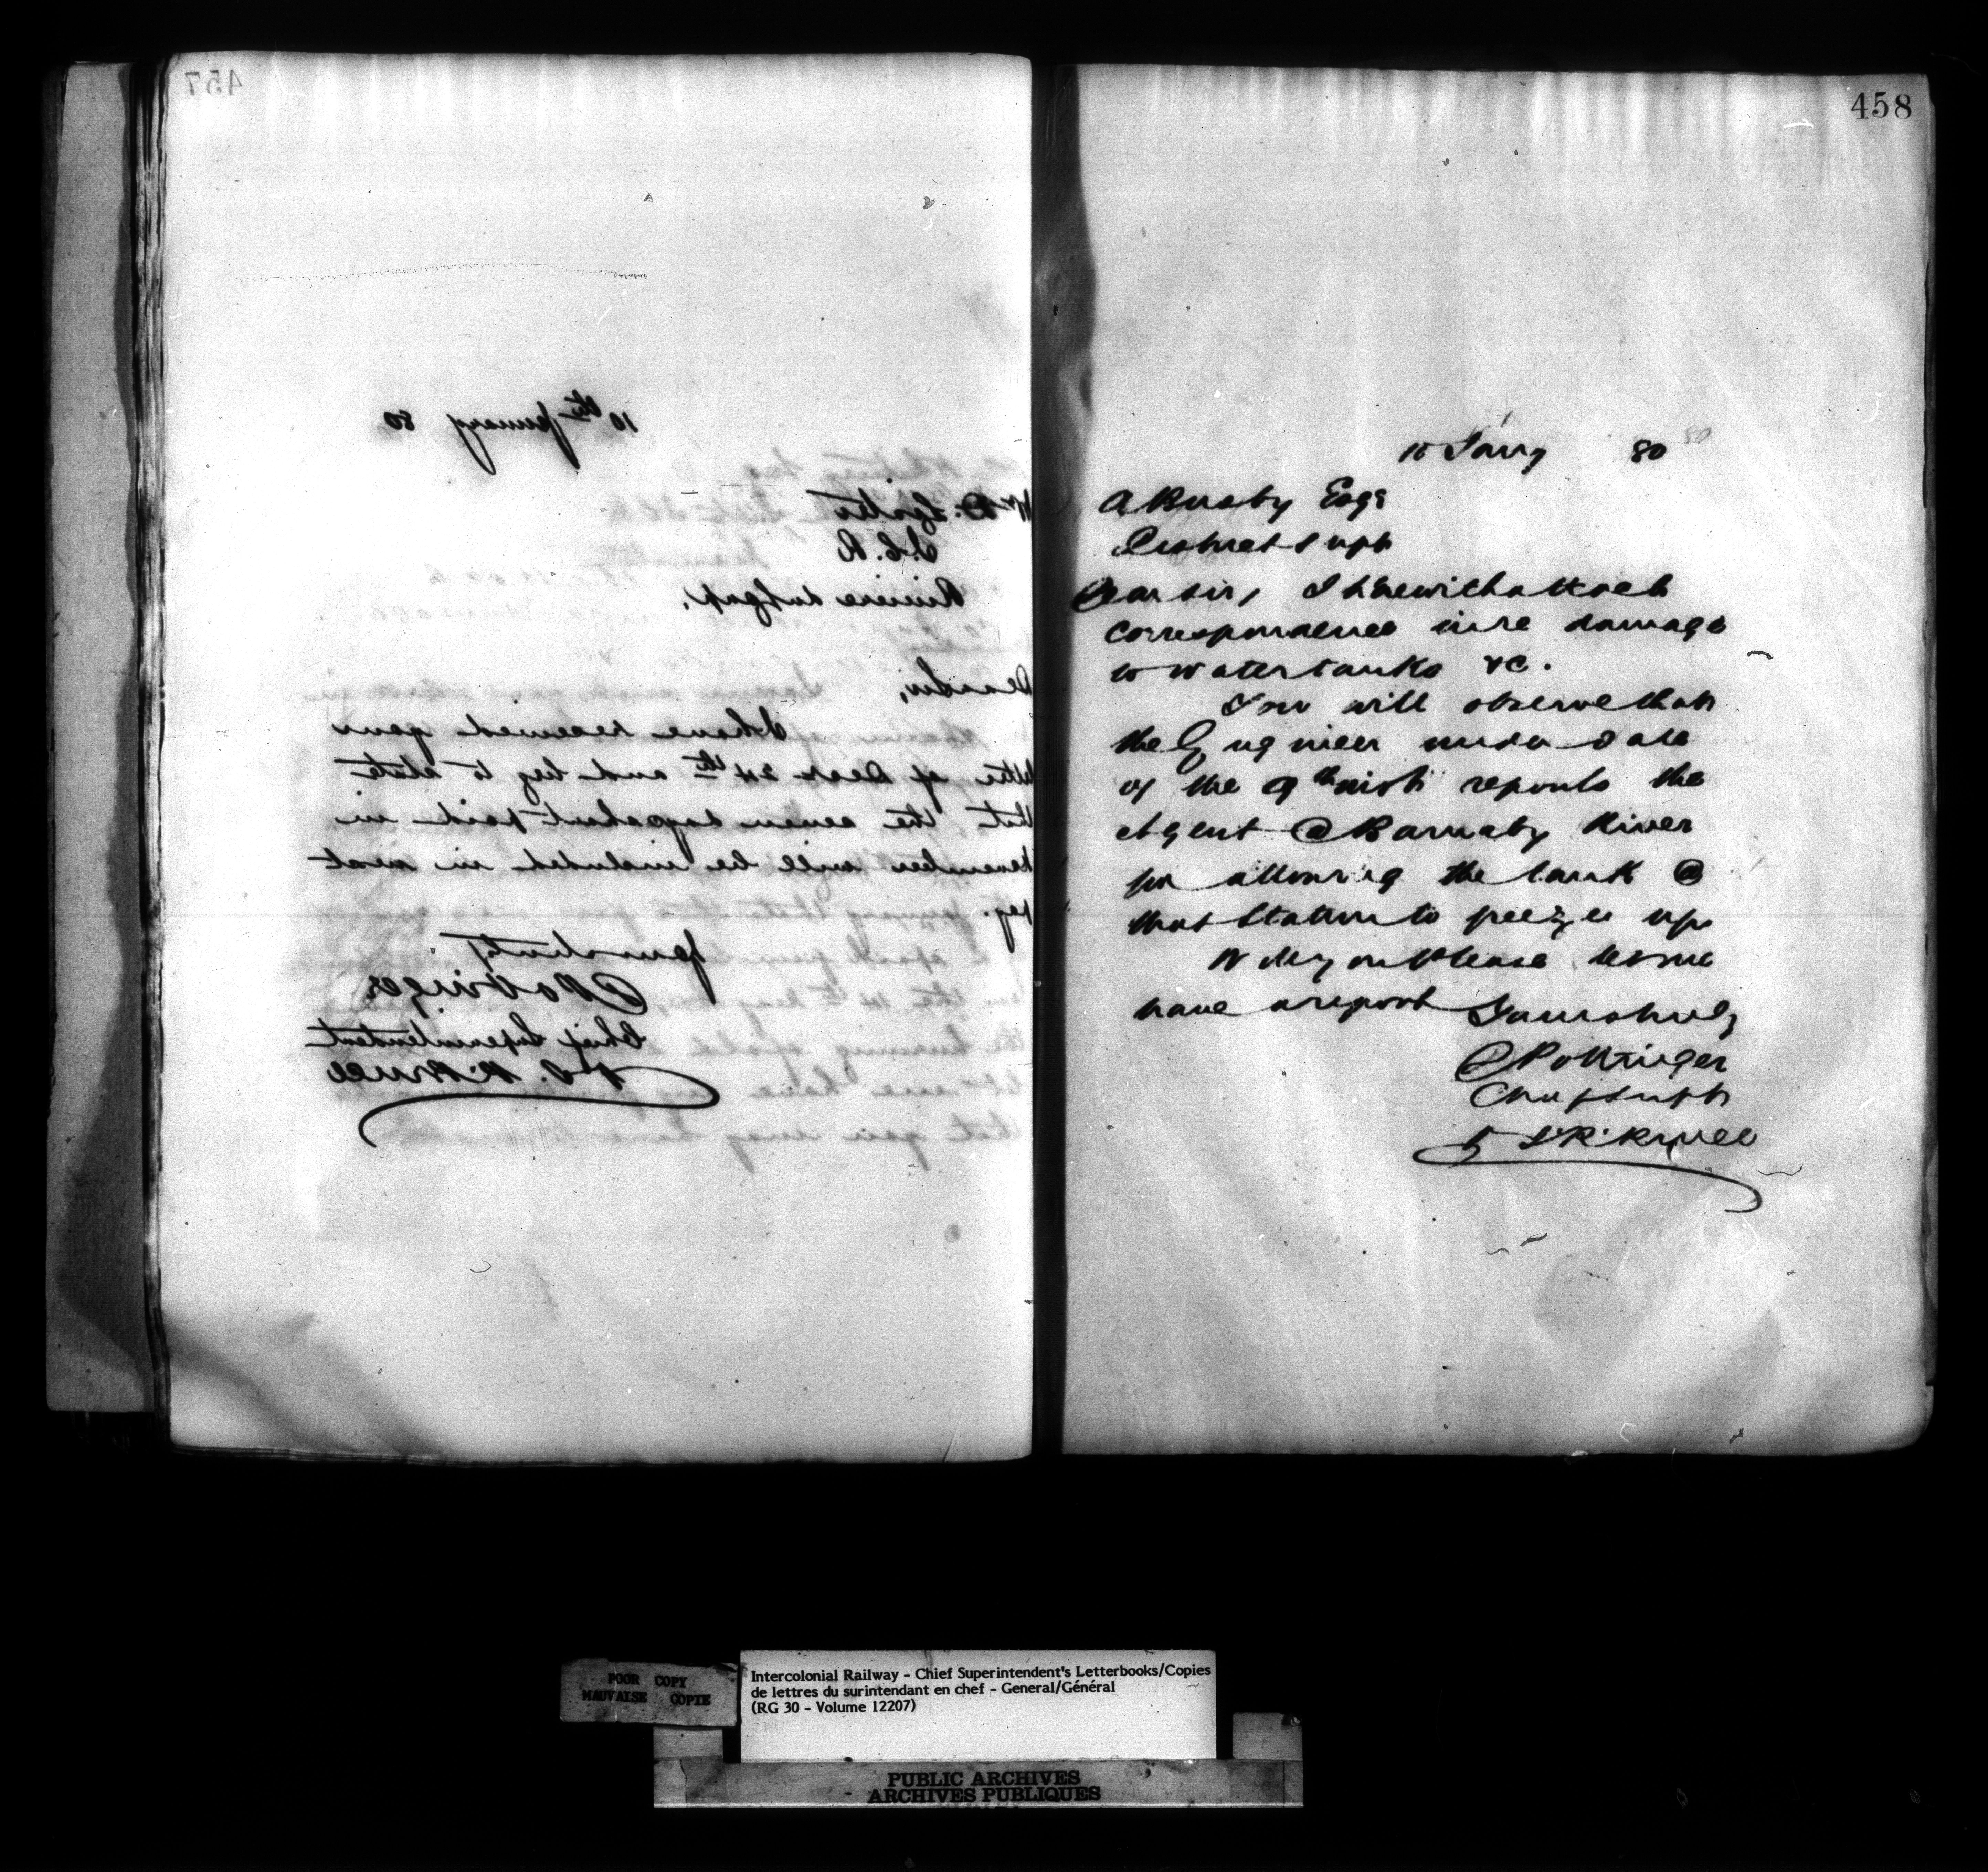 457
10th January 80
Mr D. Lister
I.C.R
Riviere du Loup,
Dear Sir,
I have received your
letter of Decr 24th and beg to state
that the seven days short paid in
November will be included in next
pay.
Yours truly
D Pottinger
Chief Superintendent
P S. R. Bruce
458
10 Jany 80
A Busby Esqr
District Supt
Dear Sir, I herewith attach
correspondence in re damage
to water tanks &c.
You will observe that
the Engineer under date
of the 9th inst reports the
Agent @ Barnaby River
for allowing the tank @
that Station to freeze up
Will you Please let me
have a report Yours truly
D Pottinger
Chief Supt
POOR COPY
MAUVAISE COPIE
Intercolonial Railway - Chief Superintendent's Letterbooks/Copies
de lettres du surintendant en chef - General/Général
(RG 30 - Volume 12207)
PUBLIC ARCHIVES
ARCHIVES PUBLIQUES